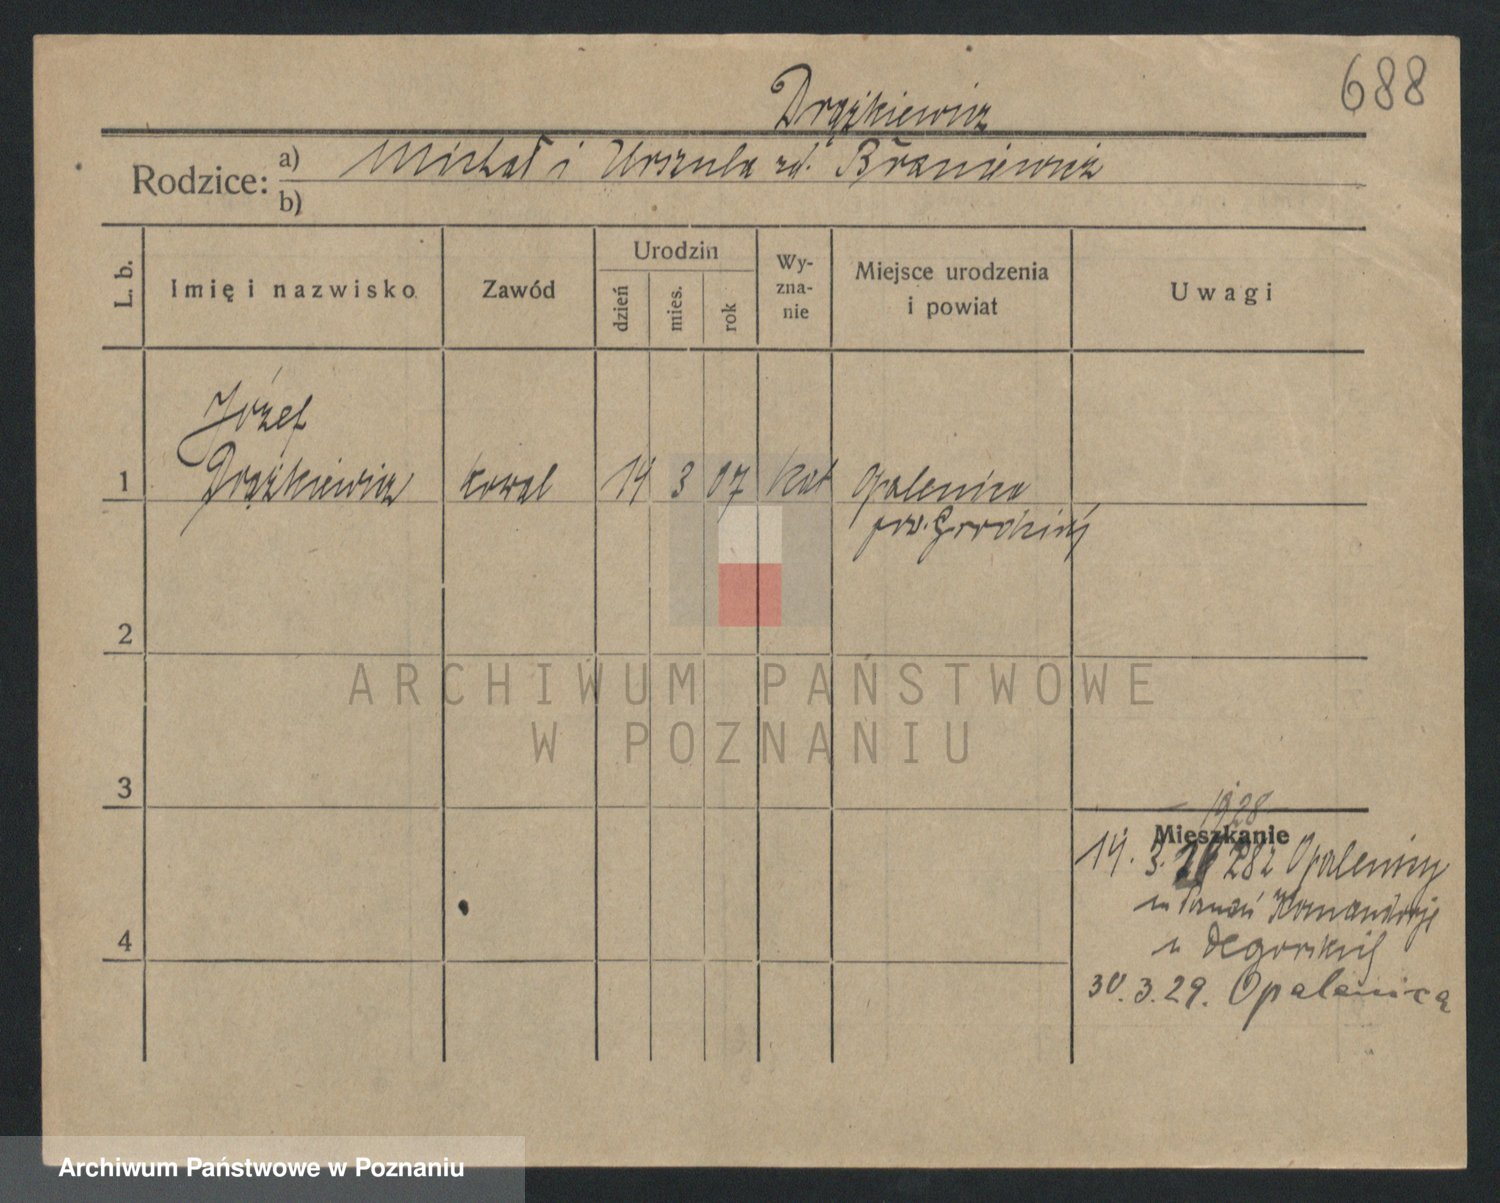 688
Drążkiewicz
Rodzice: a) Michał i Urszula zd. Błaniewicz
b)
L. b.
Imię i nazwisko
Zawód
Urodzin
dzień
mies.
rok
Wy-
zna-
nie
Miejsce urodzenia
i powiat
Uwagi
Józef
1 Drążkiewicz kowal 14 3 07 kat Opalenica
pow. Grodzisk
2
3
4
1928
Mieszkanie
14. 3. 28 z Opalenicy
30. 3. 29. Opalenica
ARCHIWUM PAŃSTWOWE
W POZNANIU
Archiwum Państwowe w Poznaniu